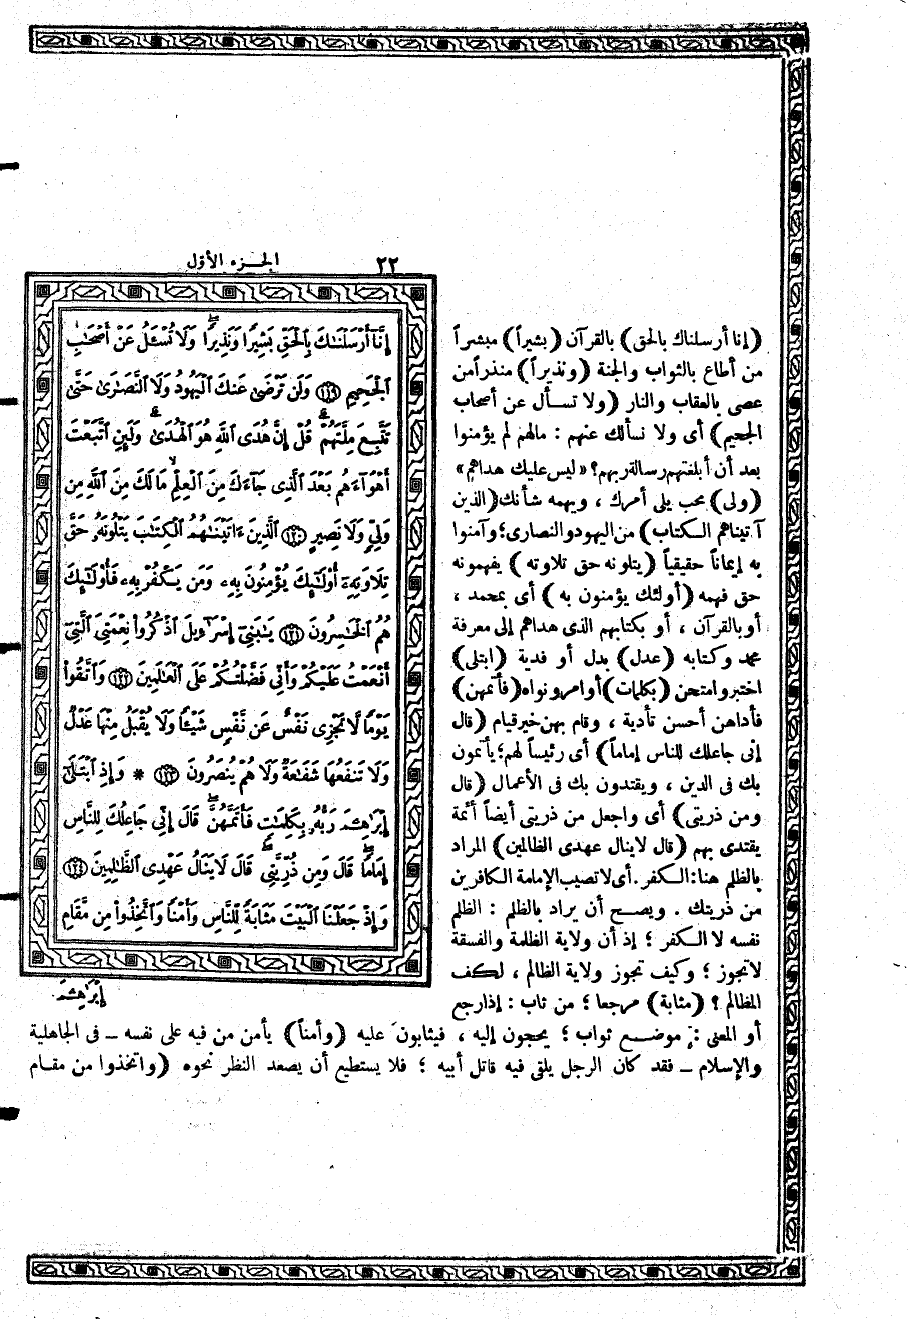 ٢٢
الجزء الأول
(إنا أرسلناك بالحق) بالقرآن (بشيراً) مبشراً
من أطاع بالثواب والجنة (ونذيراً) منذراً من
عصى بالعقاب والنار (ولا تسأل عن أصحاب
الجحيم) أى ولا نسألك عنهم : مالهم لم يؤمنوا
بعد أن أبلغتهم رسالة ربهم؟ «ليس عليك هداهم»
(ولى) محب يلى أمرك ، ويهمه شأنك (الذين
آتيناهم الكتاب) من اليهود والنصارى؛ وآمنوا
به إيماناً حقيقياً (يتلونه حق تلاوته) يفهمونه
حق فهمه (أولئك يؤمنون به) أى بمحمد ،
أو بالقرآن ، أو بكتابهم الذى هداهم إلى معرفة
محمد وكتابه (عدل) بدل أو فدية (ابتلى)
اختبر وامتحن (بكلمات) أوامر ونواه (فأتمهن)
فأداهن أحسن تأدية ، وقام بهن خير قيام (قال
إنى جاعلك للناس إماماً) أى رئيساً لهم؛ يأتمون
بك فى الدين ، ويقتدون بك فى الأعمال (قال
ومن ذريتى) أى واجعل من ذريتى أيضاً أئمة
يقتدى بهم (قال لا ينال عهدى الظالمين) المراد
بالظلم هنا : الكفر . أى لا تصيب الإمامة الكافرين
من ذريتك . ويصح أن يراد بالظلم : الظلم
نفسه لا الكفر ؛ إذ أن ولاية الظلمة والفسقة
لا تجوز ؛ وكيف تجوز ولاية الظالم ، لكف
المظالم ؟ (مثابة) مرجعا ؛ من ثاب : إذا رجع
أو المعنى : موضع ثواب ؛ يحجون إليه ، فيثابون عليه (وأمناً) يأمن من فيه على نفسه ــ فى الجاهلية
والإسلام ــ فقد كان الرجل يلقى فيه قاتل أبيه ؛ فلا يستطيع أن يصعد النظر نحوه (واتخذوا من مقام
إِنَّآ أَرْسَلْنَٰكَ بِٱلْحَقِّ بَشِيرًا وَنَذِيرًا وَلَا تُسْـَٔلُ عَنْ أَصْحَٰبِ
ٱلْجَحِيمِ ١١٩ وَلَن تَرْضَىٰ عَنكَ ٱلْيَهُودُ وَلَا ٱلنَّصَٰرَىٰ حَتَّىٰ
تَتَّبِعَ مِلَّتَهُمْ قُلْ إِنَّ هُدَى ٱللَّهِ هُوَ ٱلْهُدَىٰ وَلَئِنِ ٱتَّبَعْتَ
أَهْوَآءَهُم بَعْدَ ٱلَّذِى جَآءَكَ مِنَ ٱلْعِلْمِ مَا لَكَ مِنَ ٱللَّهِ مِن
وَلِىٍّ وَلَا نَصِيرٍ ١٢٠ ٱلَّذِينَ ءَاتَيْنَٰهُمُ ٱلْكِتَٰبَ يَتْلُونَهُۥ حَقَّ
تِلَاوَتِهِۦٓ أُو۟لَٰٓئِكَ يُؤْمِنُونَ بِهِۦ وَمَن يَكْفُرْ بِهِۦ فَأُو۟لَٰٓئِكَ
هُمُ ٱلْخَٰسِرُونَ ١٢١ يَٰبَنِىٓ إِسْرَٰٓءِيلَ ٱذْكُرُوا۟ نِعْمَتِىَ ٱلَّتِىٓ
أَنْعَمْتُ عَلَيْكُمْ وَأَنِّى فَضَّلْتُكُمْ عَلَى ٱلْعَٰلَمِينَ ١٢٢ وَٱتَّقُوا۟
يَوْمًا لَّا تَجْزِى نَفْسٌ عَن نَّفْسٍ شَيْـًٔا وَلَا يُقْبَلُ مِنْهَا عَدْلٌ
وَلَا تَنفَعُهَا شَفَٰعَةٌ وَلَا هُمْ يُنصَرُونَ ١٢٣ * وَإِذِ ٱبْتَلَىٰٓ
إِبْرَٰهِۦمَ رَبُّهُۥ بِكَلِمَٰتٍ فَأَتَمَّهُنَّ قَالَ إِنِّى جَاعِلُكَ لِلنَّاسِ
إِمَامًا قَالَ وَمِن ذُرِّيَّتِى قَالَ لَا يَنَالُ عَهْدِى ٱلظَّٰلِمِينَ ١٢٤
وَإِذْ جَعَلْنَا ٱلْبَيْتَ مَثَابَةً لِّلنَّاسِ وَأَمْنًا وَٱتَّخِذُوا۟ مِن مَّقَامِ
إِبْرَٰهِۦمَ